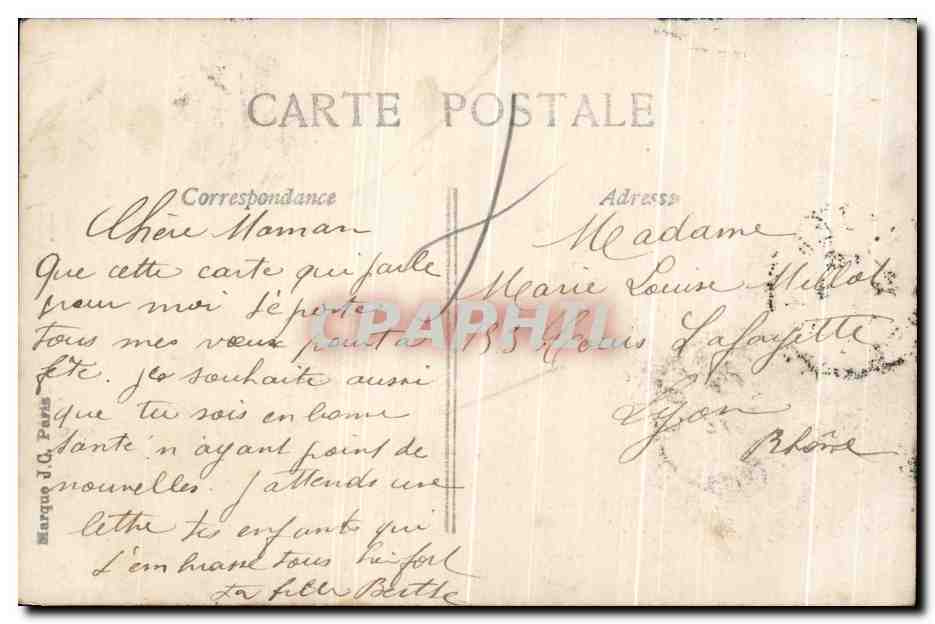 CARTE POSTALE
Correspondance
Chère Maman
Que cette carte qui parle
pour moi t'éporte
tous mes voeux pour ta
fête. Je souhaite aussi
que tu sois en bonne
santé n'ayant point de
nouvelles. J'attends une
lettre tes enfants qui
t'embrasse tous bien fort
ta fille Berthe
Adresse
Madame
Marie Louise Millot
Cours Lafayette
Lyon
Rhône
Marque J.C. Paris
CPAPHIL